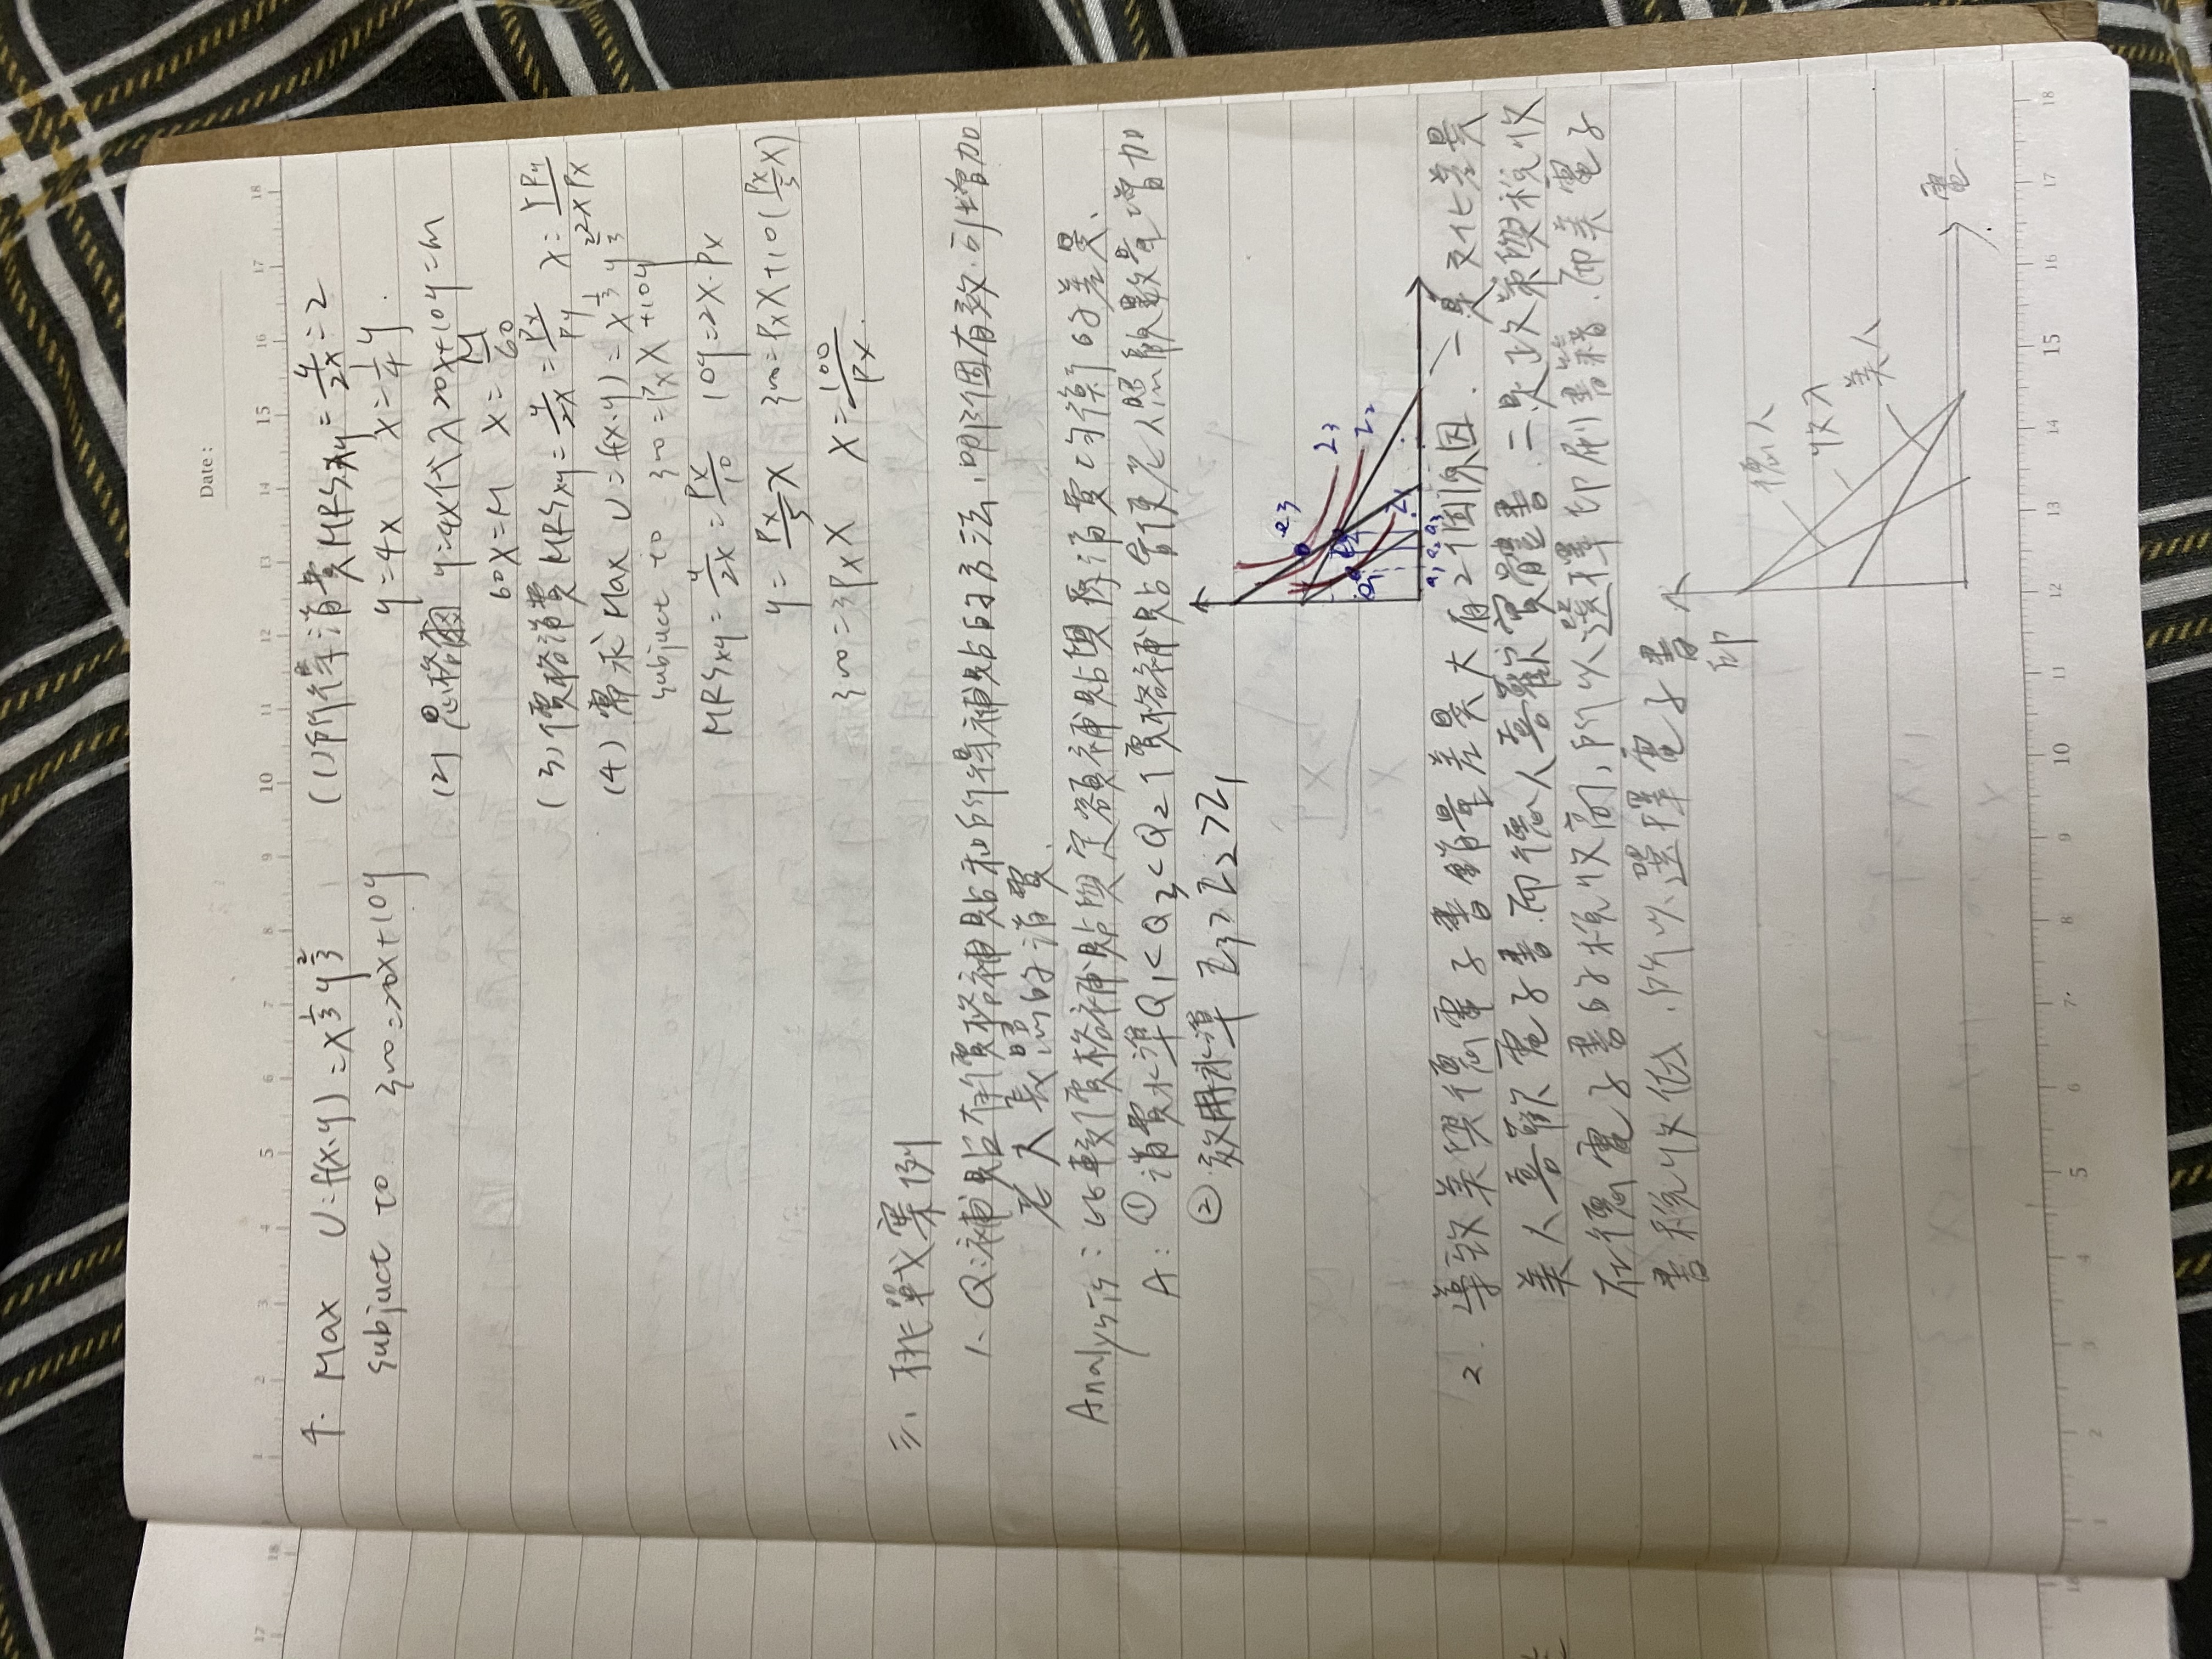 Date :
17 18 1 2 3 4 5 6 7 8 9 10 11 12 13 14 15 16 17 18
4. Max U=f(x.y)=x^{1/3}y^{2/3}
subjuct to 300=20x+10y
(1)所得消費MRSxy=y/2x=2
y=4x x=1/4y.
(2) 恩格爾 y=4x代入20x+10y=M
60x=M x=M/60
(3)價格消費MRSxy=y/2x=Px/Py
(4) 需求 Max U=f(x.y)=x^{1/3}y^{2/3}
subjuct to 300=PxX+10y
MRSxy=y/2x=Px/10 10y=2x.Px
y=Px/5 X 300=PxX+10(Px/5 X)
300=3PxX X=100/Px.
三、挑戰案例
1. Q:補貼有價格補貼和所得補貼的方法,哪個有效.可增加
老人長照的消費.
Analysis:比較價格補貼與定額補貼與原消費均衡的差異.
A:①消費水準Q1<Q3<Q2價格補貼會使老人照顧數量增加
②效用水準 I3>I2>I1
e3
I3
e2
I2
e1
I1
2. 導致美與德電子書銷量差異大有2個原因.一是文化差異
美人喜歡電子書.而德人喜歡實體書.二是政策與稅收
在德電子書的稅收高,所以選擇印刷書籍.而美電子
書稅收低.所以選擇電子書
印
德人
收入
美人
電.
18 1 2 3 4 5 6 7 8 9 10 11 12 13 14 15 16 17 18